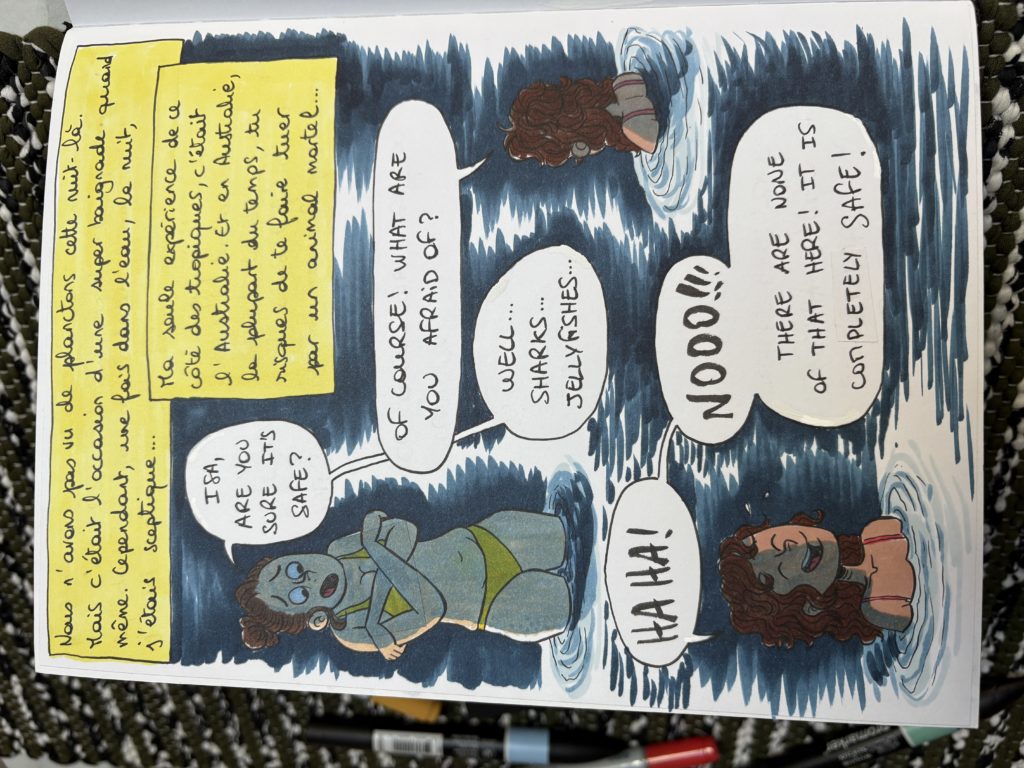 Nous n'avons pas vu de planctons cette nuit-là.
Mais c'était l'occasion d'une super baignade quand
même. Cependant, une fois dans l'eau, la nuit,
j'étais sceptique...
Ma seule expérience de ce
côté des tropiques, c'était
l'Australie. Et en Australie,
la plupart du temps, tu
risques de te faire tuer
par un animal mortel...
ISA,
ARE YOU
SURE IT'S
SAFE?
OF COURSE! WHAT ARE
YOU AFRAID OF?
WELL...
SHARKS...
JELLYFISHES...
HA HA!
NOOO!!!
THERE ARE NONE
OF THAT HERE! IT IS
COMPLETELY SAFE!